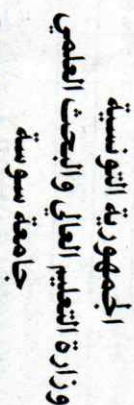 الجمهورية التونسية
وزارة التعليم العالي والبحث العلمي
جامعة سوسة